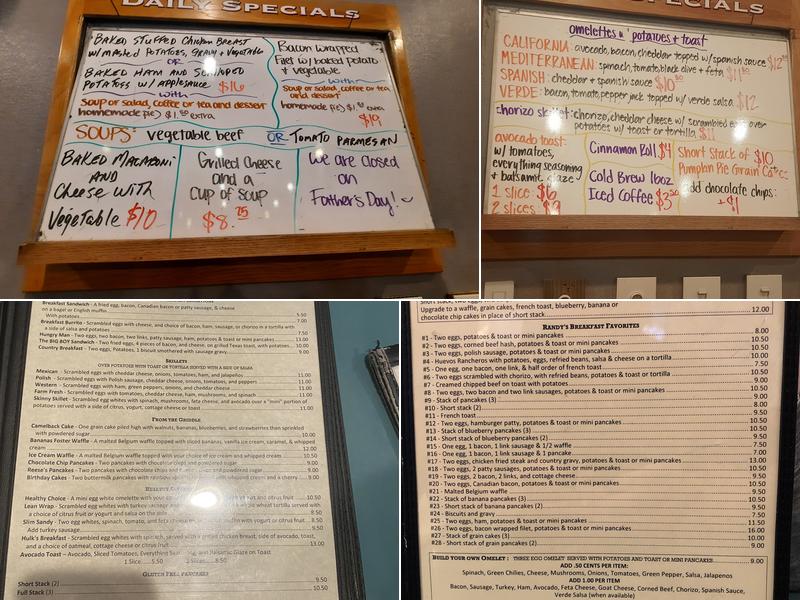 DAILY SPECIALS
BAKED STUFFED CHICKEN BREAST
W/ MASHED POTATOES, GRAVY + VEGETABLE
OR
BAKED HAM AND SCALLOPED
POTATOES W/ APPLESAUCE $16
with
Soup or salad, coffee or tea and dessert
homemade pie) $1.50 extra
Bacon wrapped
Filet w/ baked potato
+ vegetable
with
Soup or salad, coffee or tea
and dessert
homemade pie) $1.50 extra
$19
SOUPS: vegetable beef OR TOMATO PARMESAN
BAKED MACARONI
AND
CHEESE WITH
Vegetable $10
Grilled Cheese
and a
Cup of Soup
$8.75
We are closed
on
Father's Day!
SPECIALS
omelettes w/ potatoes + toast
CALIFORNIA: avocado, bacon, cheddar topped w/ spanish sauce
MEDITERRANEAN: spinach, tomato, black olive + feta
SPANISH: cheddar + spanish sauce $10.50
VERDE: bacon, tomato, pepper jack topped w/ verde salsa $12
chorizo skillet: chorizo, cheddar cheese w/ scrambled eggs over
potatoes w/ toast or tortilla $11
avocado toast:
w/ tomatoes,
everything seasoning
+ balsamic glaze
1 slice: $6
2 slices
Cinnamon Roll $4
Cold Brew 16oz
Iced Coffee $3.50
Short Stack of $10
Pumpkin Pie Grain Cakes
add chocolate chips:
+$1
Breakfast Sandwich - A fried egg, bacon, Canadian bacon or patty sausage, & cheese
on a bagel or English muffin 5.50
With potatoes 7.00
Breakfast Burrito - Scrambled eggs with cheese, and choice of bacon, ham, sausage, or chorizo in a tortilla with
a side of salsa and potatoes 7.50
Hungry Man - Two eggs, two bacon, two links, patty sausage, ham, potatoes & toast or mini pancakes 13.00
The BIG BOY Sandwich - Two fried eggs, 4 pieces of bacon, and cheese, on grilled Texas toast, with potatoes 10.00
Country Breakfast - Two eggs, Potatoes, 1 biscuit smothered with sausage gravy 9.00
SKILLETS
OVER POTATOES WITH TOAST OR TORTILLA SERVED WITH A SIDE OF SALSA
Mexican - Scrambled eggs with cheddar cheese, onions, tomatoes, ham, and jalapeños 11.00
Polish - Scrambled eggs with Polish sausage, cheddar cheese, onions, tomatoes, and peppers 11.00
Western - Scrambled eggs with ham, green peppers, onions, and cheddar cheese 11.00
Farm Fresh - Scrambled eggs with tomatoes, cheddar cheese, ham, mushrooms, and spinach 11.00
Skinny Skillet - Scrambled egg whites with spinach, mushrooms, feta cheese, and avocado over a "mini" portion of
potatoes served with a side of citrus, yogurt, cottage cheese or toast 11.00
FROM THE GRIDDLE
Camelback Cake - One grain cake piled high with walnuts, bananas, blueberries, and strawberries than sprinkled
with powdered sugar 10.00
Bananas Foster Waffle - A malted Belgium waffle topped with sliced bananas, vanilla ice cream, caramel, & whipped
cream 12.00
Ice Cream Waffle - A malted Belgium waffle topped with your choice of ice cream and whipped cream 10.50
Chocolate Chip Pancakes - Two pancakes with chocolate chips and powdered sugar 9.00
Reese's Pancakes - Two pancakes with chocolate chips and 9.00
Birthday Cakes - Two buttermilk pancakes with whipped cream and a cherry 9.50
Healthy Choice - A mini egg white omelette with your and citrus fruit 10.50
Lean Wrap - Scrambled egg whites with turkey sausage wheat tortilla served with
a choice of citrus fruit or yogurt and salsa on the side 8.50
Slim Sandy - Two egg whites, spinach, tomato, and feta cheese muffin with yogurt or citrus fruit 8.50
Add turkey sausage
Hulk's Breakfast - Scrambled egg whites with spinach, served with grilled chicken breast, side of avocado, toast,
and a choice of oatmeal, cottage cheese or citrus fruit 13.00
Avocado Toast - Avocado, Sliced Tomatoes, Everything Seasoning, and Balsamic Glaze on Toast
1 Slice 5.50 2 Slices 8.50
GLUTEN FREE PANCAKES
Short Stack (2) 9.50
Full Stack (3) 10.50
Upgrade to a waffle, grain cakes, french toast, blueberry, banana or
chocolate chip cakes in place of short stack 12.00
RANDY'S BREAKFAST FAVORITES
#1 - Two eggs, potatoes & toast or mini pancakes 8.00
#2 - Two eggs, corned beef hash, potatoes & toast or mini pancakes 10.50
#3 - Two eggs, polish sausage, potatoes & toast or mini pancakes 10.50
#4 - Huevos Rancheros with potatoes, eggs, refried beans, salsa & cheese on a tortilla 10.00
#5 - One egg, one bacon, one link, & half order of french toast 7.50
#6 - Two eggs scrambled with chorizo, with refried beans, potatoes & toast or tortilla 10.50
#7 - Creamed chipped beef on toast with potatoes 9.00
#8 - Two eggs, two bacon and two link sausages, potatoes & toast or mini pancakes 10.50
#9 - Stack of pancakes (3) 9.00
#10 - Short stack (2) 8.00
#11 - French toast 9.50
#12 - Two eggs, hamburger patty, potatoes & toast or mini pancakes 10.50
#13 - Stack of blueberry pancakes (3) 10.50
#14 - Short stack of blueberry pancakes (2) 9.50
#15 - One egg, 1 bacon, 1 link sausage & 1/2 waffle 7.50
#16 - One egg, 1 bacon, 1 link sausage & 1 pancake 7.00
#17 - Two eggs, chicken fried steak and country gravy, potatoes & toast or mini pancakes 13.00
#18 - Two eggs, 2 patty sausages, potatoes & toast or mini pancakes 10.50
#19 - Two eggs, 2 bacon, 2 links, and cottage cheese 9.50
#20 - Two eggs, Canadian bacon, potatoes & toast or mini pancakes 10.50
#21 - Malted Belgium waffle 9.50
#22 - Stack of banana pancakes (3) 10.50
#23 - Short stack of banana pancakes (2) 9.50
#24 - Biscuits and gravy 7.50
#25 - Two eggs, ham, potatoes & toast or mini pancakes 11.50
#26 - Two eggs, bacon wrapped filet, potatoes & toast or mini pancakes 16.00
#27 - Stack of grain cakes (3) 10.00
#28 - Short stack of grain pancakes (2) 9.00
BUILD YOUR OWN OMELET: THREE EGG OMELET SERVED WITH POTATOES AND TOAST OR MINI PANCAKES 9.00
ADD .50 CENTS PER ITEM:
Spinach, Green Chilies, Cheese, Mushrooms, Onions, Tomatoes, Green Pepper, Salsa, Jalapenos
ADD 1.00 PER ITEM
Bacon, Sausage, Turkey, Ham, Avocado, Feta Cheese, Goat Cheese, Corned Beef, Chorizo, Spanish Sauce,
Verde Salsa (when available)